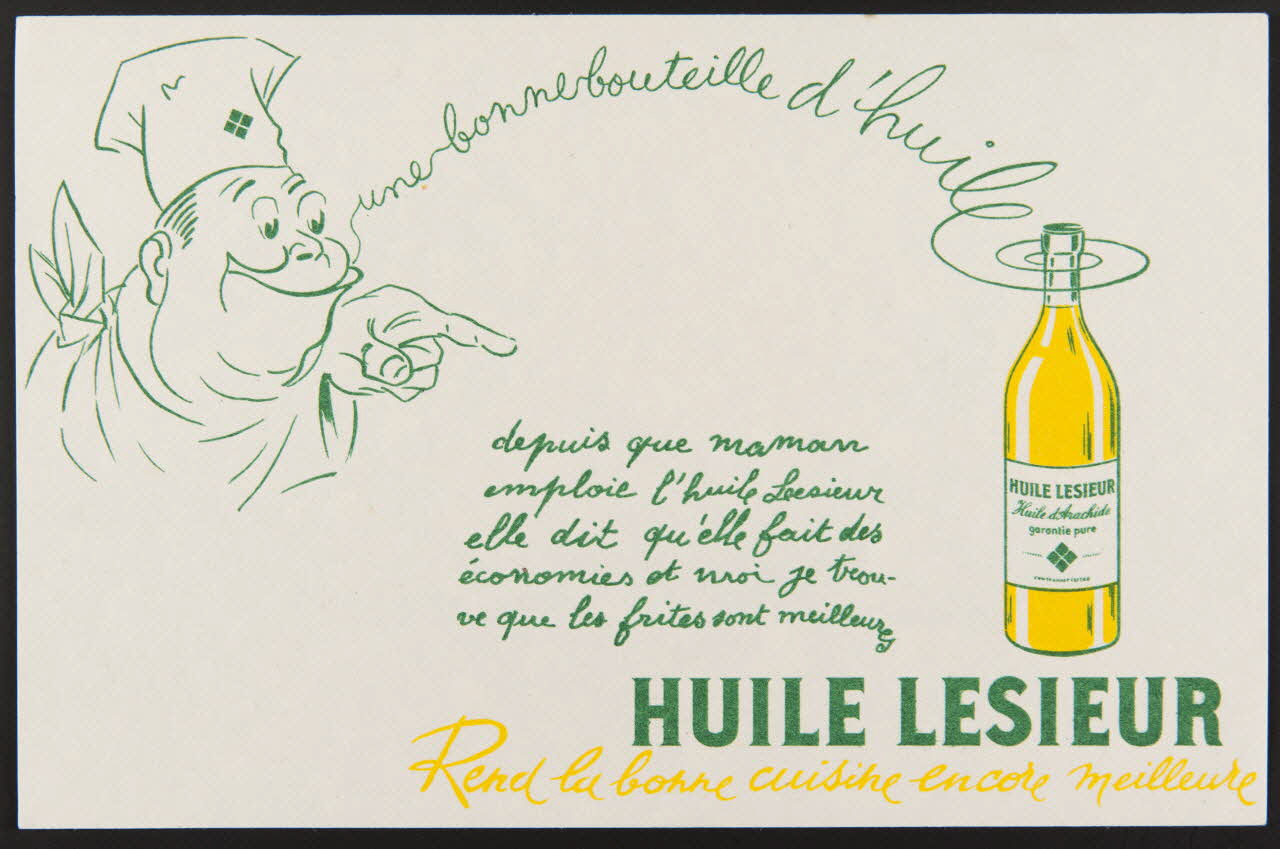 une bonne bouteille d'huile
depuis que maman
emploie l'huile Lesieur
elle dit qu'elle fait des
économies et moi je trou-
ve que les frites sont meilleures
HUILE LESIEUR
Huile d'Arachide
garantie pure
HUILE LESIEUR
Rend la bonne cuisine encore meilleure